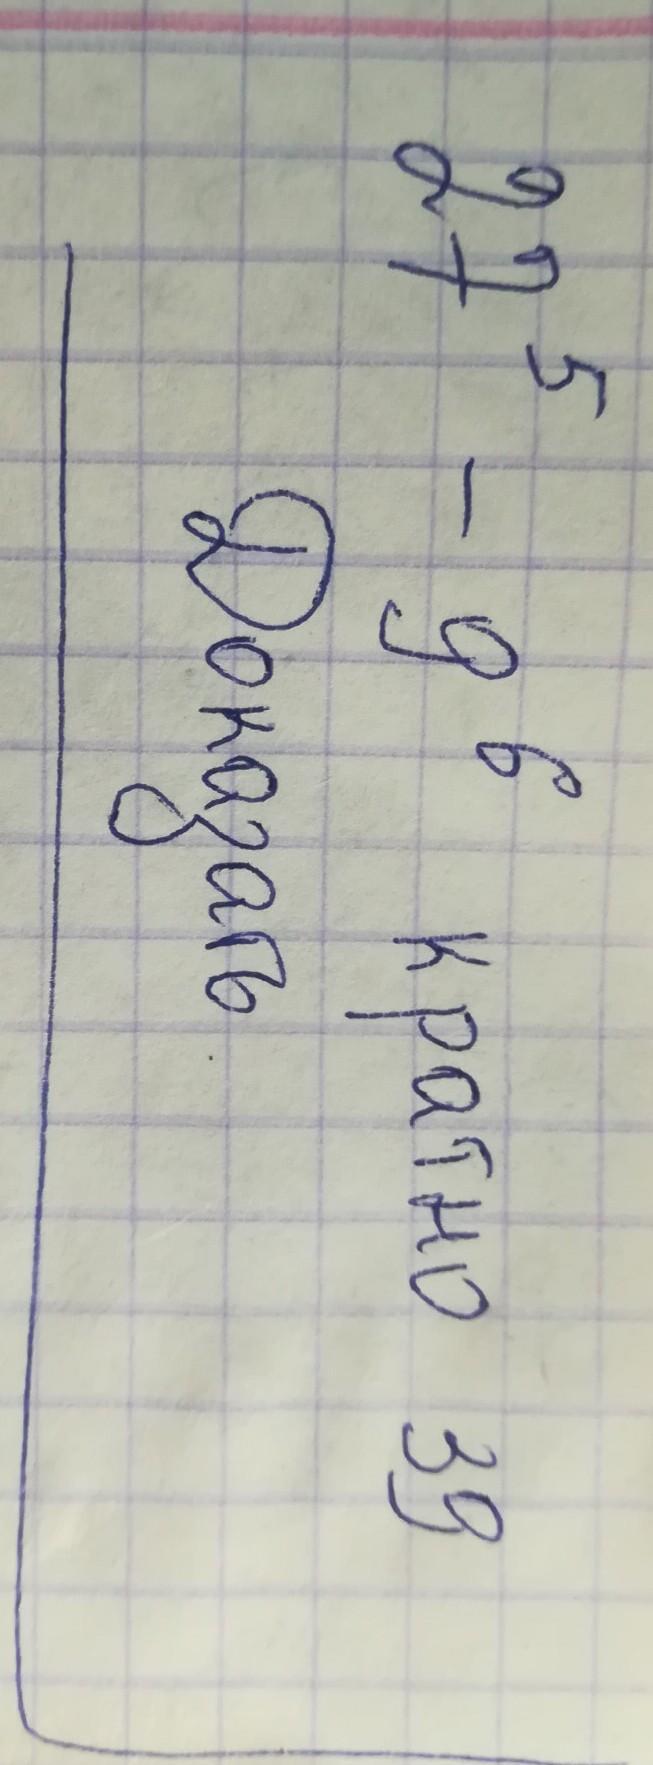 27⁵ - 9⁶ кратно 39
Доказать